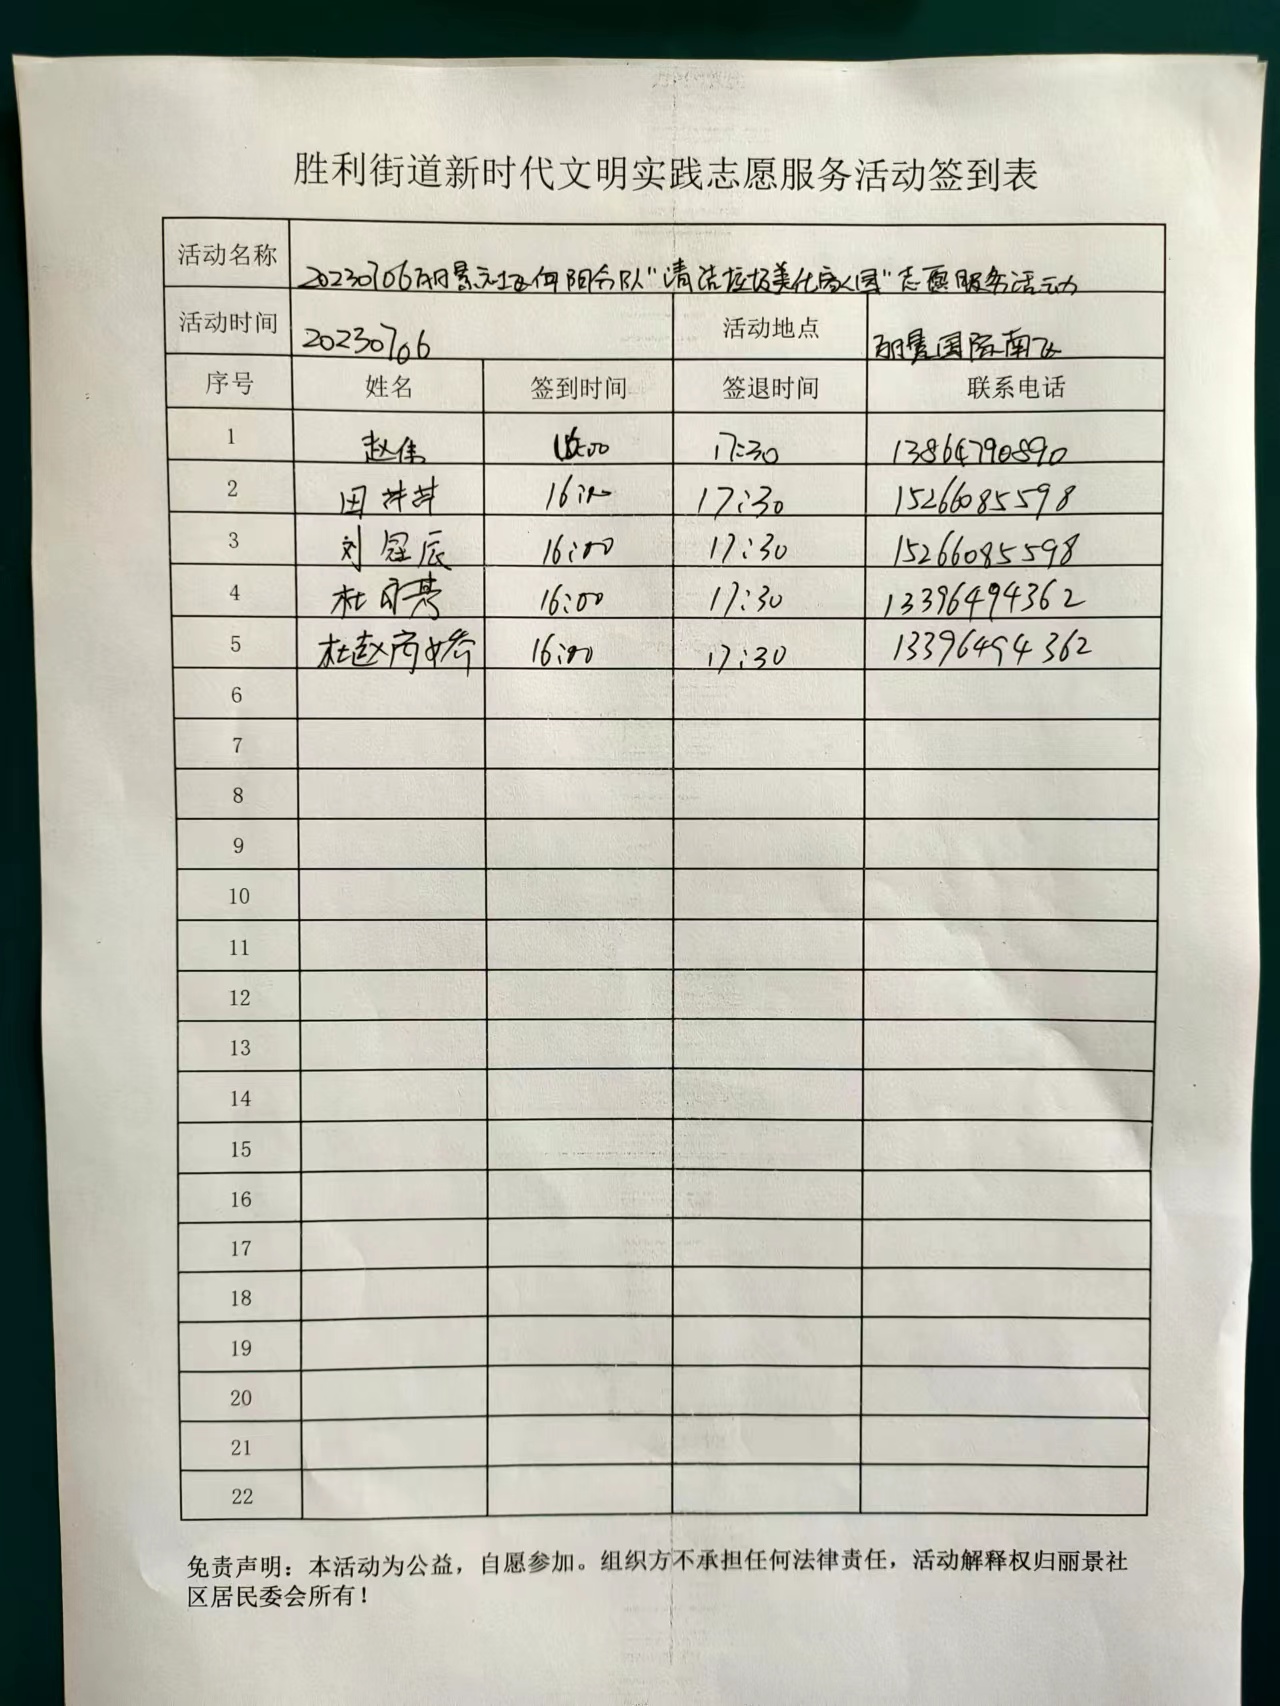 胜利街道新时代文明实践志愿服务活动签到表
活动名称 20230706丽景社区向阳分队“清洁垃圾美化家园”志愿服务活动
活动时间 20230706 活动地点 丽景国际南区
序号 姓名 签到时间 签退时间 联系电话
1 赵伟 16:00 17:30 13864790890
2 田井井 16:00 17:30 15266085598
3 刘冠辰 16:00 17:30 15266085598
4 杜 16:00 17:30 13396494362
5 杜赵 16:00 17:30 13396494362
6
7
8
9
10
11
12
13
14
15
16
17
18
19
20
21
22
免责声明：本活动为公益，自愿参加。组织方不承担任何法律责任，活动解释权归丽景社
区居民委会所有！